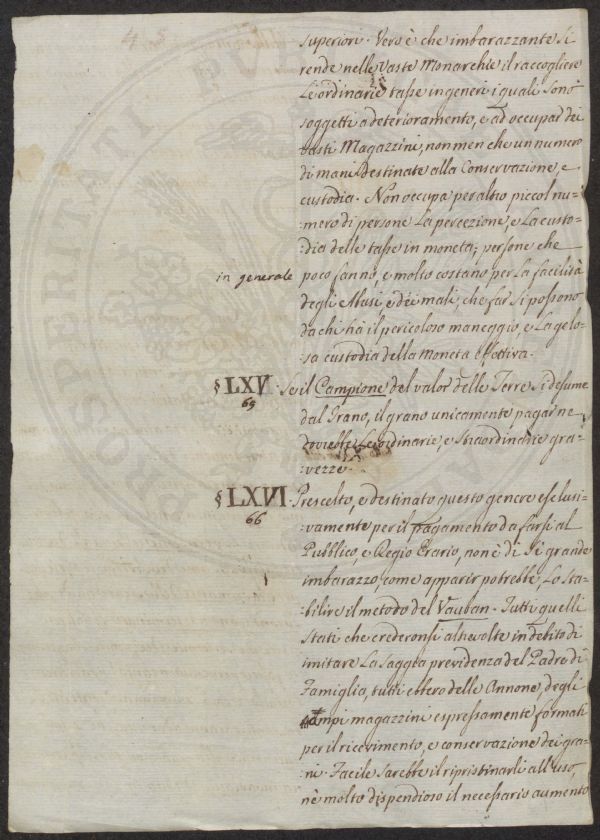 superiori. Vero è che imbarazzante si
rende nelle vaste Monarchie il raccogliere
Le ordinarie tasse in generi i quali sono
soggetti a deterioramento, e ad occupar dei
vasti Magazzini, non men che un numero
di mani destinate alla Conservazione, e
custodia. Non occupa per altro piccol nu=
:mero di persone La percezione, e La custo=
:dia delle tasse in moneta; persone che
in generale
poco fanno, e molto costano per La facilità
degli Abusi, e dei mali, che far si possono
da chi hà il pericoloso maneggio, e La gelo=
:sa custodia della moneta effettiva.
§ LXV. Se il Campione del valor delle Terre si desume
65
dal Grano, il grano unicamente pagar ne
dovrebbe Le ordinarie, e straordinarie gra=
:vezze.
§ LXVI. Prescelto, e destinato questo genere esclusi=
66
:vamente per il pagamento da farsi al
Pubblico, e Regio Erario, non è di sì grande
imbarazzo, come apparir potrebbe, Lo sta=
:bilire il metodo del Vauban. Tutti quelli
Stati che crederonsi altre volte in debito di
imitare La saggia previdenza del Padre di
Famiglia, tutti ebbero delle Annone, degli
ampi magazzini espressamente formati
per il ricevimento, e conservazione dei gra=
:ni. Facile sarebbe il ripristinarli all'uso,
nè molto dispendioso il necessario aumento